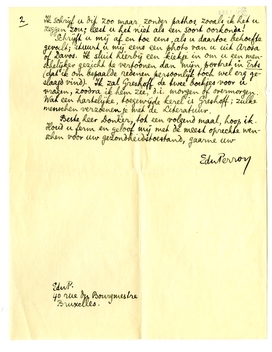 2
Ik schrijf u dit zoo maar zonder pathos zooals ik het u
zeggen zou; leest u het niet als een soort oorkonde!
Schrijft u mij af en toe eens, als u daartoe behoefte
gevoelt; stuurt u mij eens een photo van u uit Arosa
of Davos. Ik sluit hierbij een kiekje in om u een men-
schelijker gezicht te vertoonen dan mijn portret in Erts
(dat ik om bepaalde redenen persoonlijk toch wel erg ge-
slaagd vind). Ik zal Greshoff de twee boekjes voor u
vragen, zoodra ik hem zie, d.i. morgen of overmorgen.
Wat een hartelijke, toegewijde kerel is Greshoff; zulke
menschen verzoenen je met de Literatuur.
Beste heer Donker, tot een volgend maal, hoop ik.
Houd u ferm en geloof mij met de meest oprechte wen-
schen voor uw gezondheidstoestand, gaarne uw
EduPerron
EduP.
90 rue du Bourgmestre
Bruxelles.